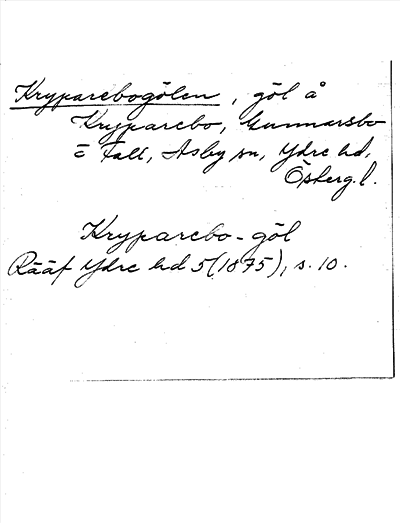 Kryparebogölen, göl å
Kryparebo, Gunnarsbo
= Fall, Asby sn, Ydre hd,
Österg.l.
Kryparebo-göl
Rääf Ydre hd 5 (1875), s. 10.